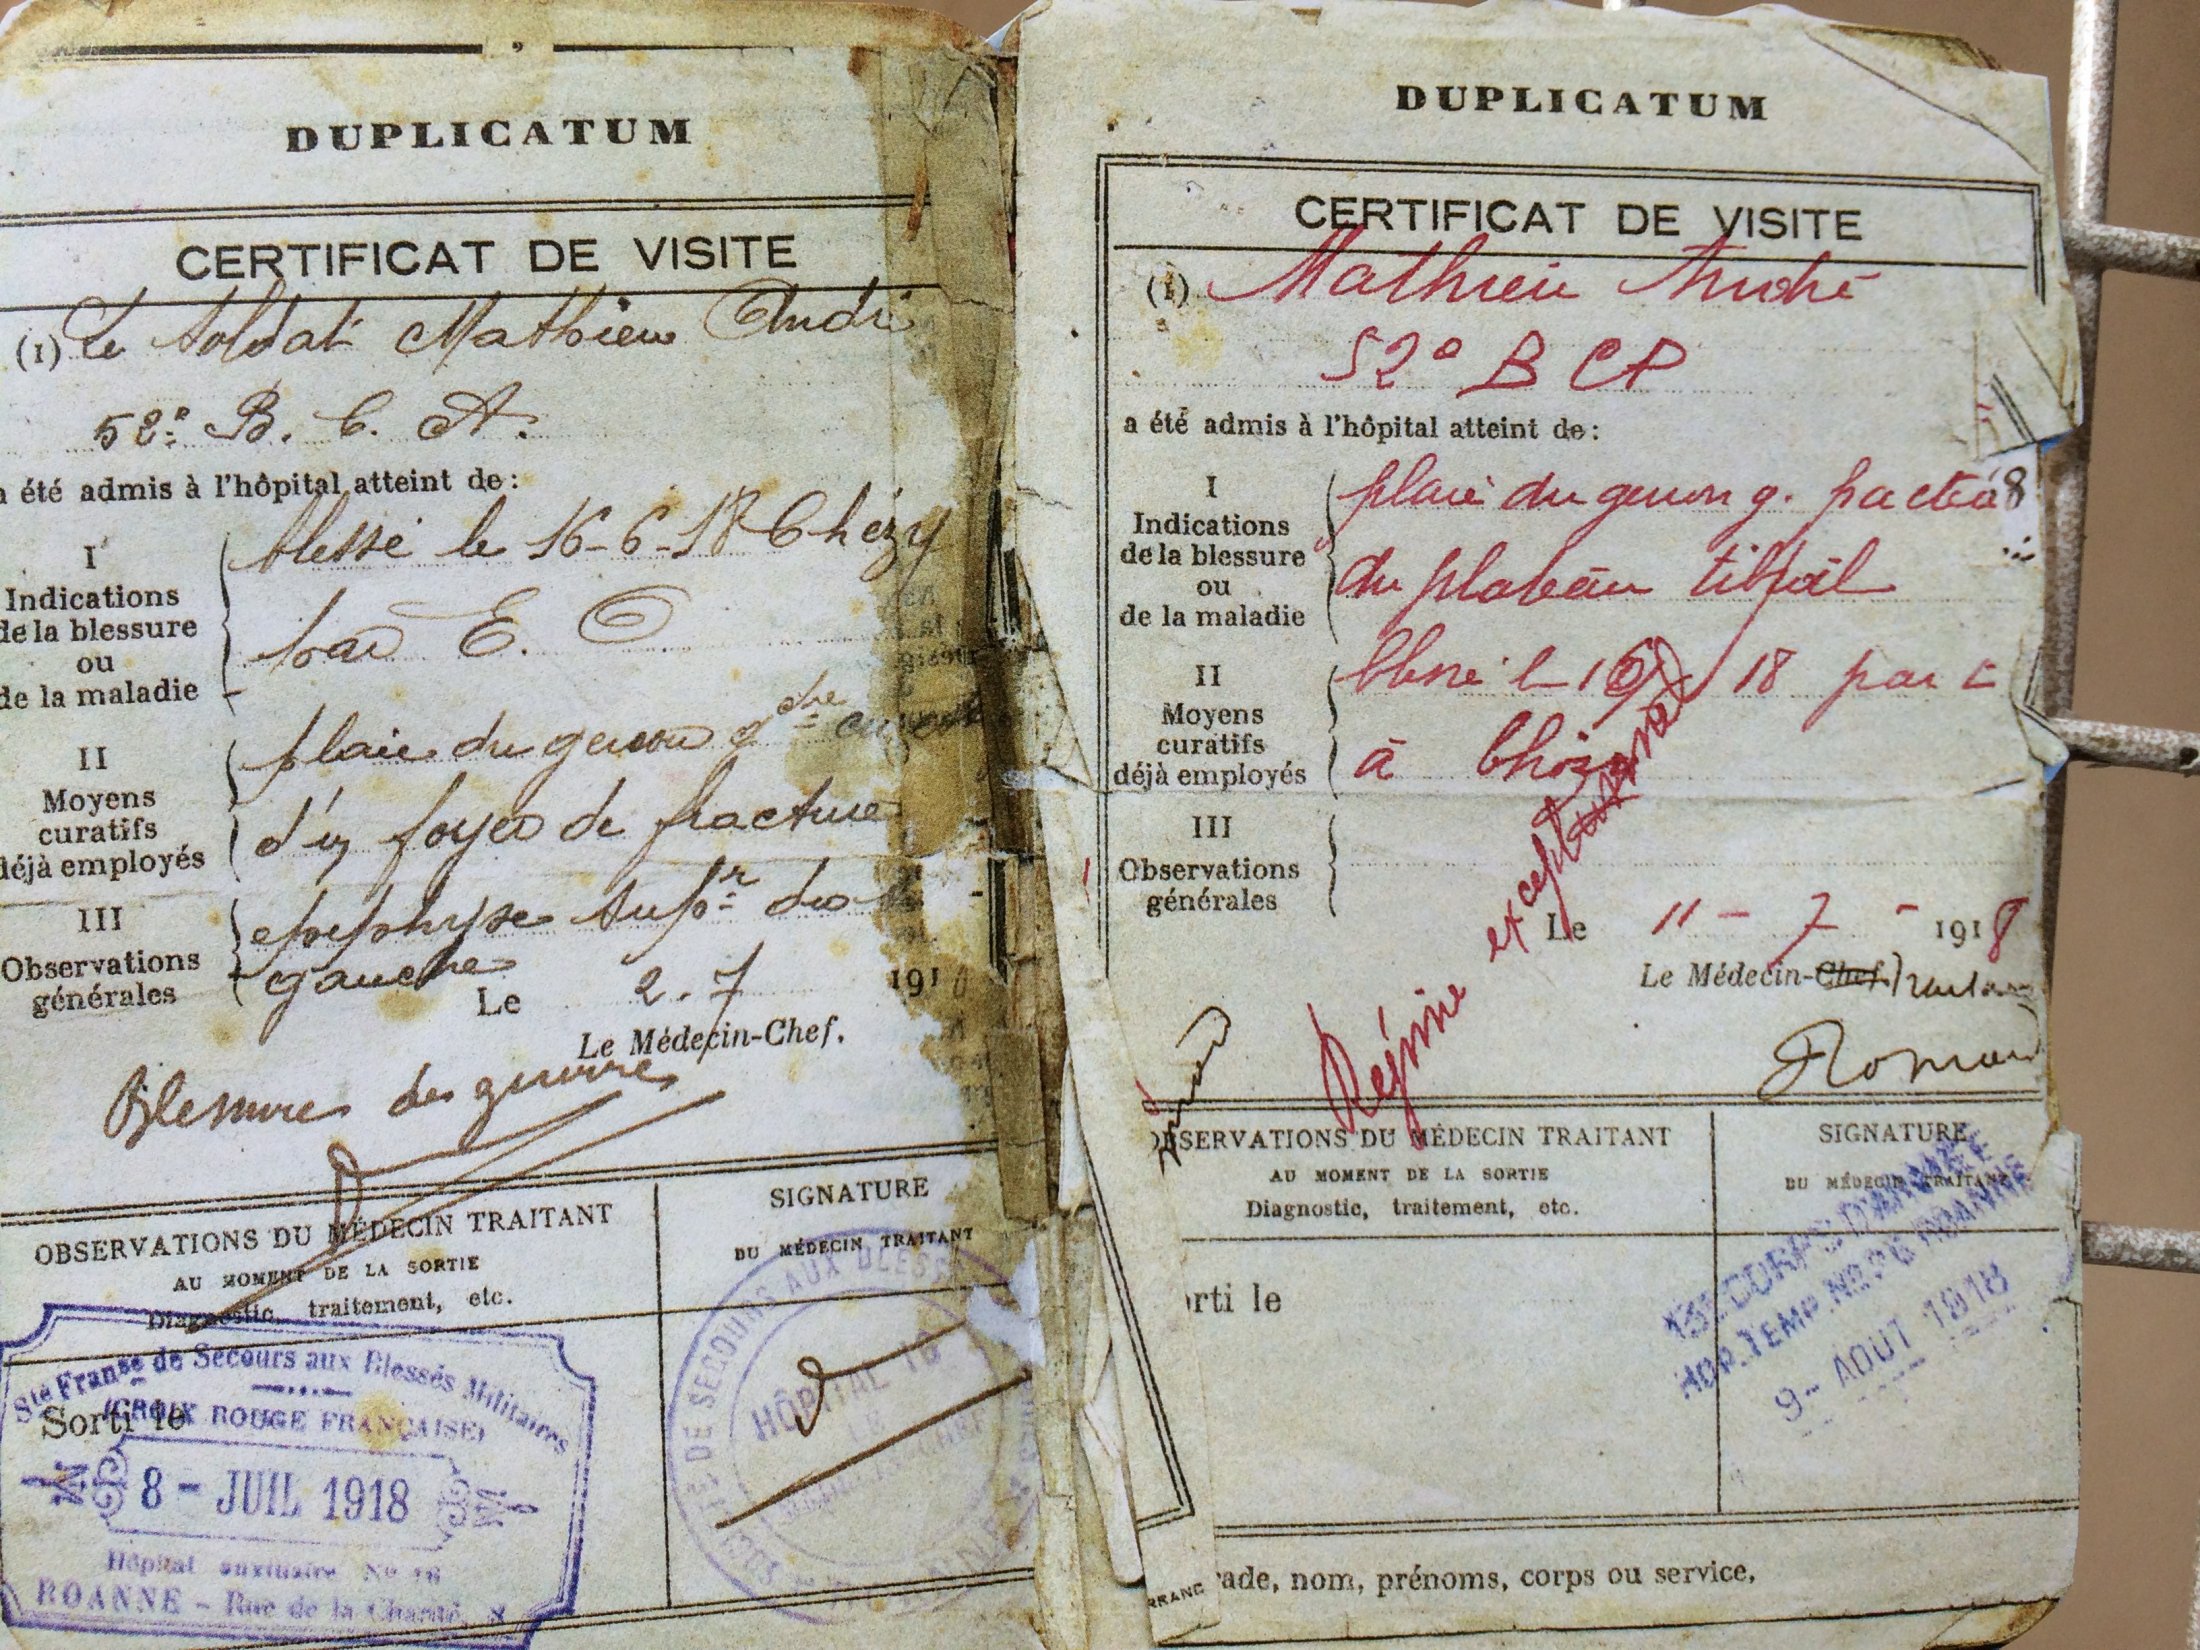 DUPLICATUM
CERTIFICAT DE VISITE
(1) Le Soldat Mathieu André
52e B. C. A.
a été admis à l'hôpital atteint de :
I
Indications
de la blessure
ou
de la maladie
blessé le 16-6-18 Chézy
par E. O
II
Moyens
curatifs
déjà employés
plaie du genou gche
d'un foyer de fracture
III
Observations
générales
epiphyse supr
gauche
Le 2. 7 191
Le Médecin-Chef.
Blessures de guerre
OBSERVATIONS DU MÉDECIN TRAITANT
AU MOMENT DE LA SORTIE
Diagnostic, traitement, etc.
SIGNATURE
DU MÉDECIN TRAITANT
Sorti le
Sté Franse de Secours aux Blessés Militaires
(CROIX ROUGE FRANÇAISE)
8 - JUIL 1918
Hôpital auxiliaire No 16
ROANNE - Rue de la Charité, 8
DE SECOURS AUX BLESS
HÔPITAL 16
DUPLICATUM
CERTIFICAT DE VISITE
(1) Mathieu André
52e B CP
a été admis à l'hôpital atteint de :
I
Indications
de la blessure
ou
de la maladie
plaie du genou g. fractu
8
du plateau tibial
II
Moyens
curatifs
déjà employés
blessé le 18 par
à
III
Observations
générales
Régime exceptionnel
Le 11 - 7 - 1918
Le Médecin-Chef.
OBSERVATIONS DU MÉDECIN TRAITANT
AU MOMENT DE LA SORTIE
Diagnostic, traitement, etc.
SIGNATURE
DU MÉDECIN TRAITANT
rti le
13E CORPS D'ARMÉE
HOP. TEMP. No 26 ROANNE
9 - AOUT 1918
rade, nom, prénoms, corps ou service.